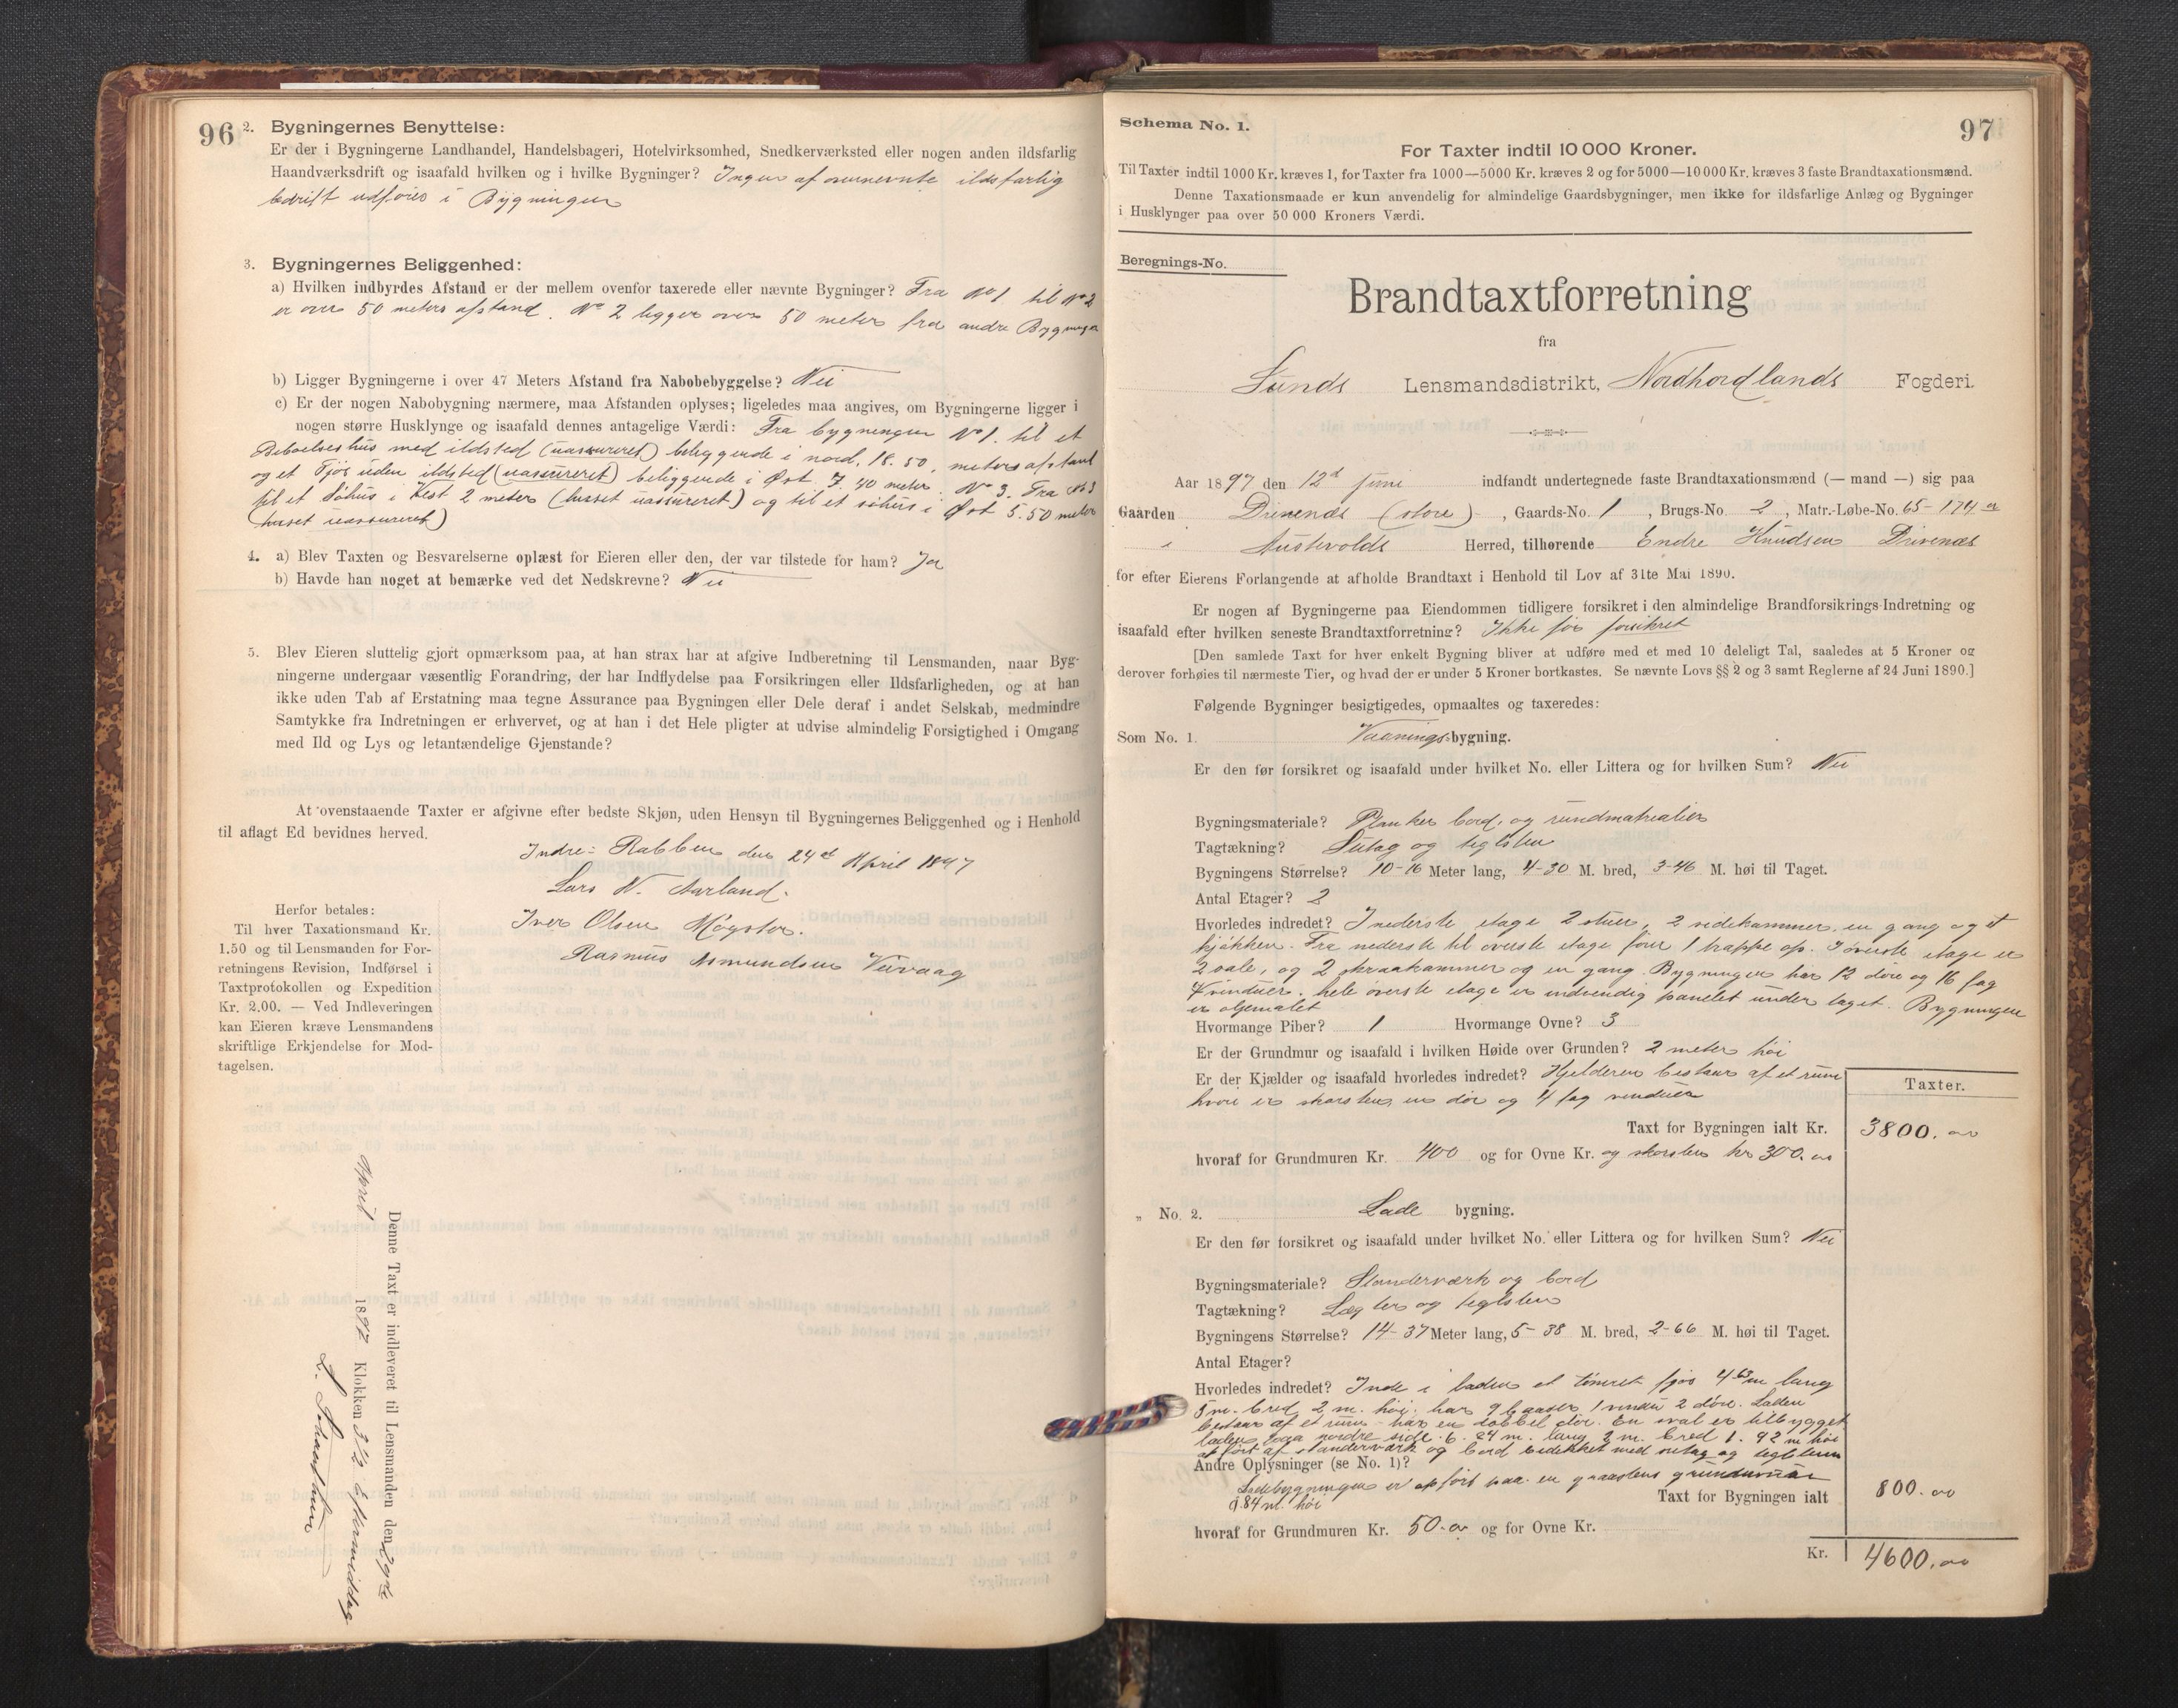 96
2. Bygningernes Benyttelse:
Er der i Bygningerne Landhandel, Handelsbageri, Hotelvirksomhed, Snedkerværksted eller nogen anden ildsfarlig
Haandværksdrift og isaafald hvilken og i hvilke Bygninger? Ingen af ovennevnte ildsfarlig
bedrift udføres i Bygningen
3. Bygningernes Beliggenhed:
a) Hvilken indbyrdes Afstand er der mellem ovenfor taxerede eller nævnte Bygninger? Fra No 1 til No 2
er over 50 meters afstand. No 2 ligger over 50 meter fra andre Bygninger
b) Ligger Bygningerne i over 47 Meters Afstand fra Nabobebyggelse? Nei
c) Er der nogen Nabobygning nærmere, maa Afstanden oplyses; ligeledes maa angives, om Bygningerne ligger i
nogen større Husklynge og isaafald dennes antagelige Værdi: Fra bygningen No 1. til et
Beboelseshus med ildsted (uassureret) beliggende i nord, 18.50, meters afstand
og et Fjøs uden ildsted (uassureret) beliggende i Øst 7.40 meter. No 3. Fra No 3
til et Søhus i Vest 2 meter (huset uassureret) og til et søhus i Øst 5.50 meter
(huset uassureret)
4. a) Blev Taxten og Besvarelserne oplæst for Eieren eller den, der var tilstede for ham? Ja
b) Havde han noget at bemærke ved det Nedskrevne? Nei
5. Blev Eieren sluttelig gjort opmærksom paa, at han strax har at afgive Indberetning til Lensmanden, naar Byg-
ningerne undergaar væsentlig Forandring, der har Indflydelse paa Forsikringen eller Ildsfarligheden, og at han
ikke uden Tab af Erstatning maa tegne Assurance paa Bygningen eller Dele deraf i andet Selskab, medmindre
Samtykke fra Indretningen er erhvervet, og at han i det Hele pligter at udvise almindelig Forsigtighed i Omgang
med Ild og Lys og letantændelige Gjenstande?
At ovenstaaende Taxter er afgivne efter bedste Skjøn, uden Hensyn til Bygningernes Beliggenhed og i Henhold
til aflagt Ed bevidnes herved.
Indre-Rabben den 24de April 1897
Lars N. Aarland.
Iver Olsen Møgster.
Rasmus Asmundsen Veivaag
Herfor betales:
Til hver Taxationsmand Kr.
1.50 og til Lensmanden for For-
retningens Revision, Indførsel i
Taxtprotokollen og Expedition
Kr. 2.00. — Ved Indleveringen
kan Eieren kræve Lensmandens
skriftlige Erkjendelse for Mod-
tagelsen.
Denne Taxt er indleveret til Lensmanden den 29de
April 1897 Klokken 3 1/2 eftermiddag
97
Schema No. 1.
For Taxter indtil 10 000 Kroner.
Til Taxter indtil 1000 Kr. kræves 1, for Taxter fra 1000—5000 Kr. kræves 2 og for 5000—10 000 Kr. kræves 3 faste Brandtaxationsmænd.
Denne Taxationsmaade er kun anvendelig for almindelige Gaardsbygninger, men ikke for ildsfarlige Anlæg og Bygninger
i Husklynger paa over 50 000 Kroners Værdi.
Beregnings-No.
Brandtaxtforretning
fra
Sunds Lensmandsdistrikt, Nordhordlands Fogderi.
Aar 1897 den 12te Juni indfandt undertegnede faste Brandtaxationsmænd (— mand —) sig paa
Gaarden Drivenæs (store), Gaards-No. 1, Brugs-No. 2, Matr.-Løbe-No. 65-174 a
i Austevolds Herred, tilhørende Endre Knudsen Drivenæs
for efter Eierens Forlangende at afholde Brandtaxt i Henhold til Lov af 31te Mai 1890.
Er nogen af Bygningerne paa Eiendommen tidligere forsikret i den almindelige Brandforsikrings-Indretning og
isaafald efter hvilken seneste Brandtaxtforretning? Ikke før forsikret
[Den samlede Taxt for hver enkelt Bygning bliver at udføre med et med 10 deleligt Tal, saaledes at 5 Kroner og
derover forhøies til nærmeste Tier, og hvad der er under 5 Kroner bortkastes. Se nævnte Lovs §§ 2 og 3 samt Reglerne af 24 Juni 1890.]
Følgende Bygninger besigtigedes, opmaaltes og taxeredes:
Som No. 1. Vaaningsbygning.
Er den før forsikret og isaafald under hvilket No. eller Littera og for hvilken Sum? Nei
Bygningsmateriale? Planker bord, og rundmatrialier
Tagtækning? Sutag og teglsten
Bygningens Størrelse? 10-16 Meter lang, 4-30 M. bred, 3-46 M. høi til Taget.
Antal Etager? 2
Hvorledes indredet? I nederste etage 2 stuer, 2 sidekammer, en gang og et
kjøkken. Fra nederste til øverste etage fører 1 trappe op. I øverste etage er
2 sale, og 2 skraakammer og en gang. Bygningen har 12 døre og 16 fag
vinduer. hele øverste etage er indvendig panelet under taget. Bygningen
er oljemalet
Hvormange Piber? 1 Hvormange Ovne? 3
Er der Grundmur og isaafald i hvilken Høide over Grunden? 2 meter høi
Er der Kjælder og isaafald hvorledes indredet? Kjelderen bestaar af et rum
hvori er skorsten, en dør og 4 fag vinduer
Taxter.
Taxt for Bygningen ialt Kr. 3800.00
hvoraf for Grundmuren Kr. 400 og for Ovne Kr. og skorsten kr 300.00
„ No. 2. Lade bygning.
Er den før forsikret og isaafald under hvilket No. eller Littera og for hvilken Sum? Nei
Bygningsmateriale? Standerværk og bord
Tagtækning? Lægter og teglsten
Bygningens Størrelse? 14-37 Meter lang, 5-38 M. bred, 2-66 M. høi til Taget.
Antal Etager?
Hvorledes indredet? Inde i laden et tømret fjøs 4 63 m lang
5 m. bred 2 m. høi. har 9 baaser 1 vindu 2 døre. Laden
bestaar af et rum - har en dobbel dør. En sval er tilbygget
laden paa nordre side. 6.24 m. lang 2 m. bred 1.92 m høi
opført af standerværk og bord bedækket med sutag og teglsten
Andre Oplysninger (se No. 1)?
Ladebygningen er opført paa en graastens grundmur
0.84 m. høi
Taxt for Bygningen ialt 800.00
hvoraf for Grundmuren Kr. 50.00 og for Ovne Kr.
Kr. 4600.00